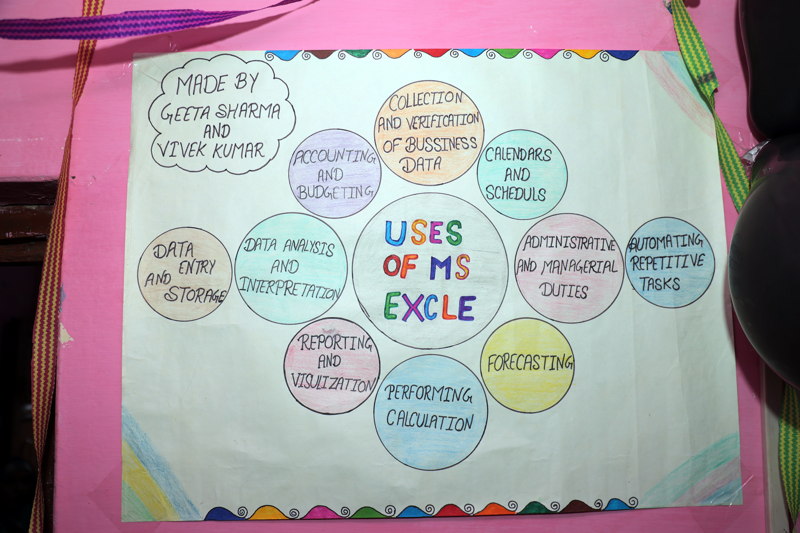 MADE BY
GEETA SHARMA
AND
VIVEK KUMAR
COLLECTION
AND VERIFICATION
OF BUSSINESS
DATA
ACCOUNTING
AND
BUDGETING
CALENDARS
AND
SCHEDULS
USES
OF MS
EXCLE
DATA
ENTRY
AND
STORAGE
DATA ANALYSIS
AND
INTERPRETATION
ADMINISTRATIVE
AND MANAGERIAL
DUTIES
AUTOMATING
REPETITIVE
TASKS
REPORTING
AND
VISULIZATION
PERFORMING
CALCULATION
FORECASTING